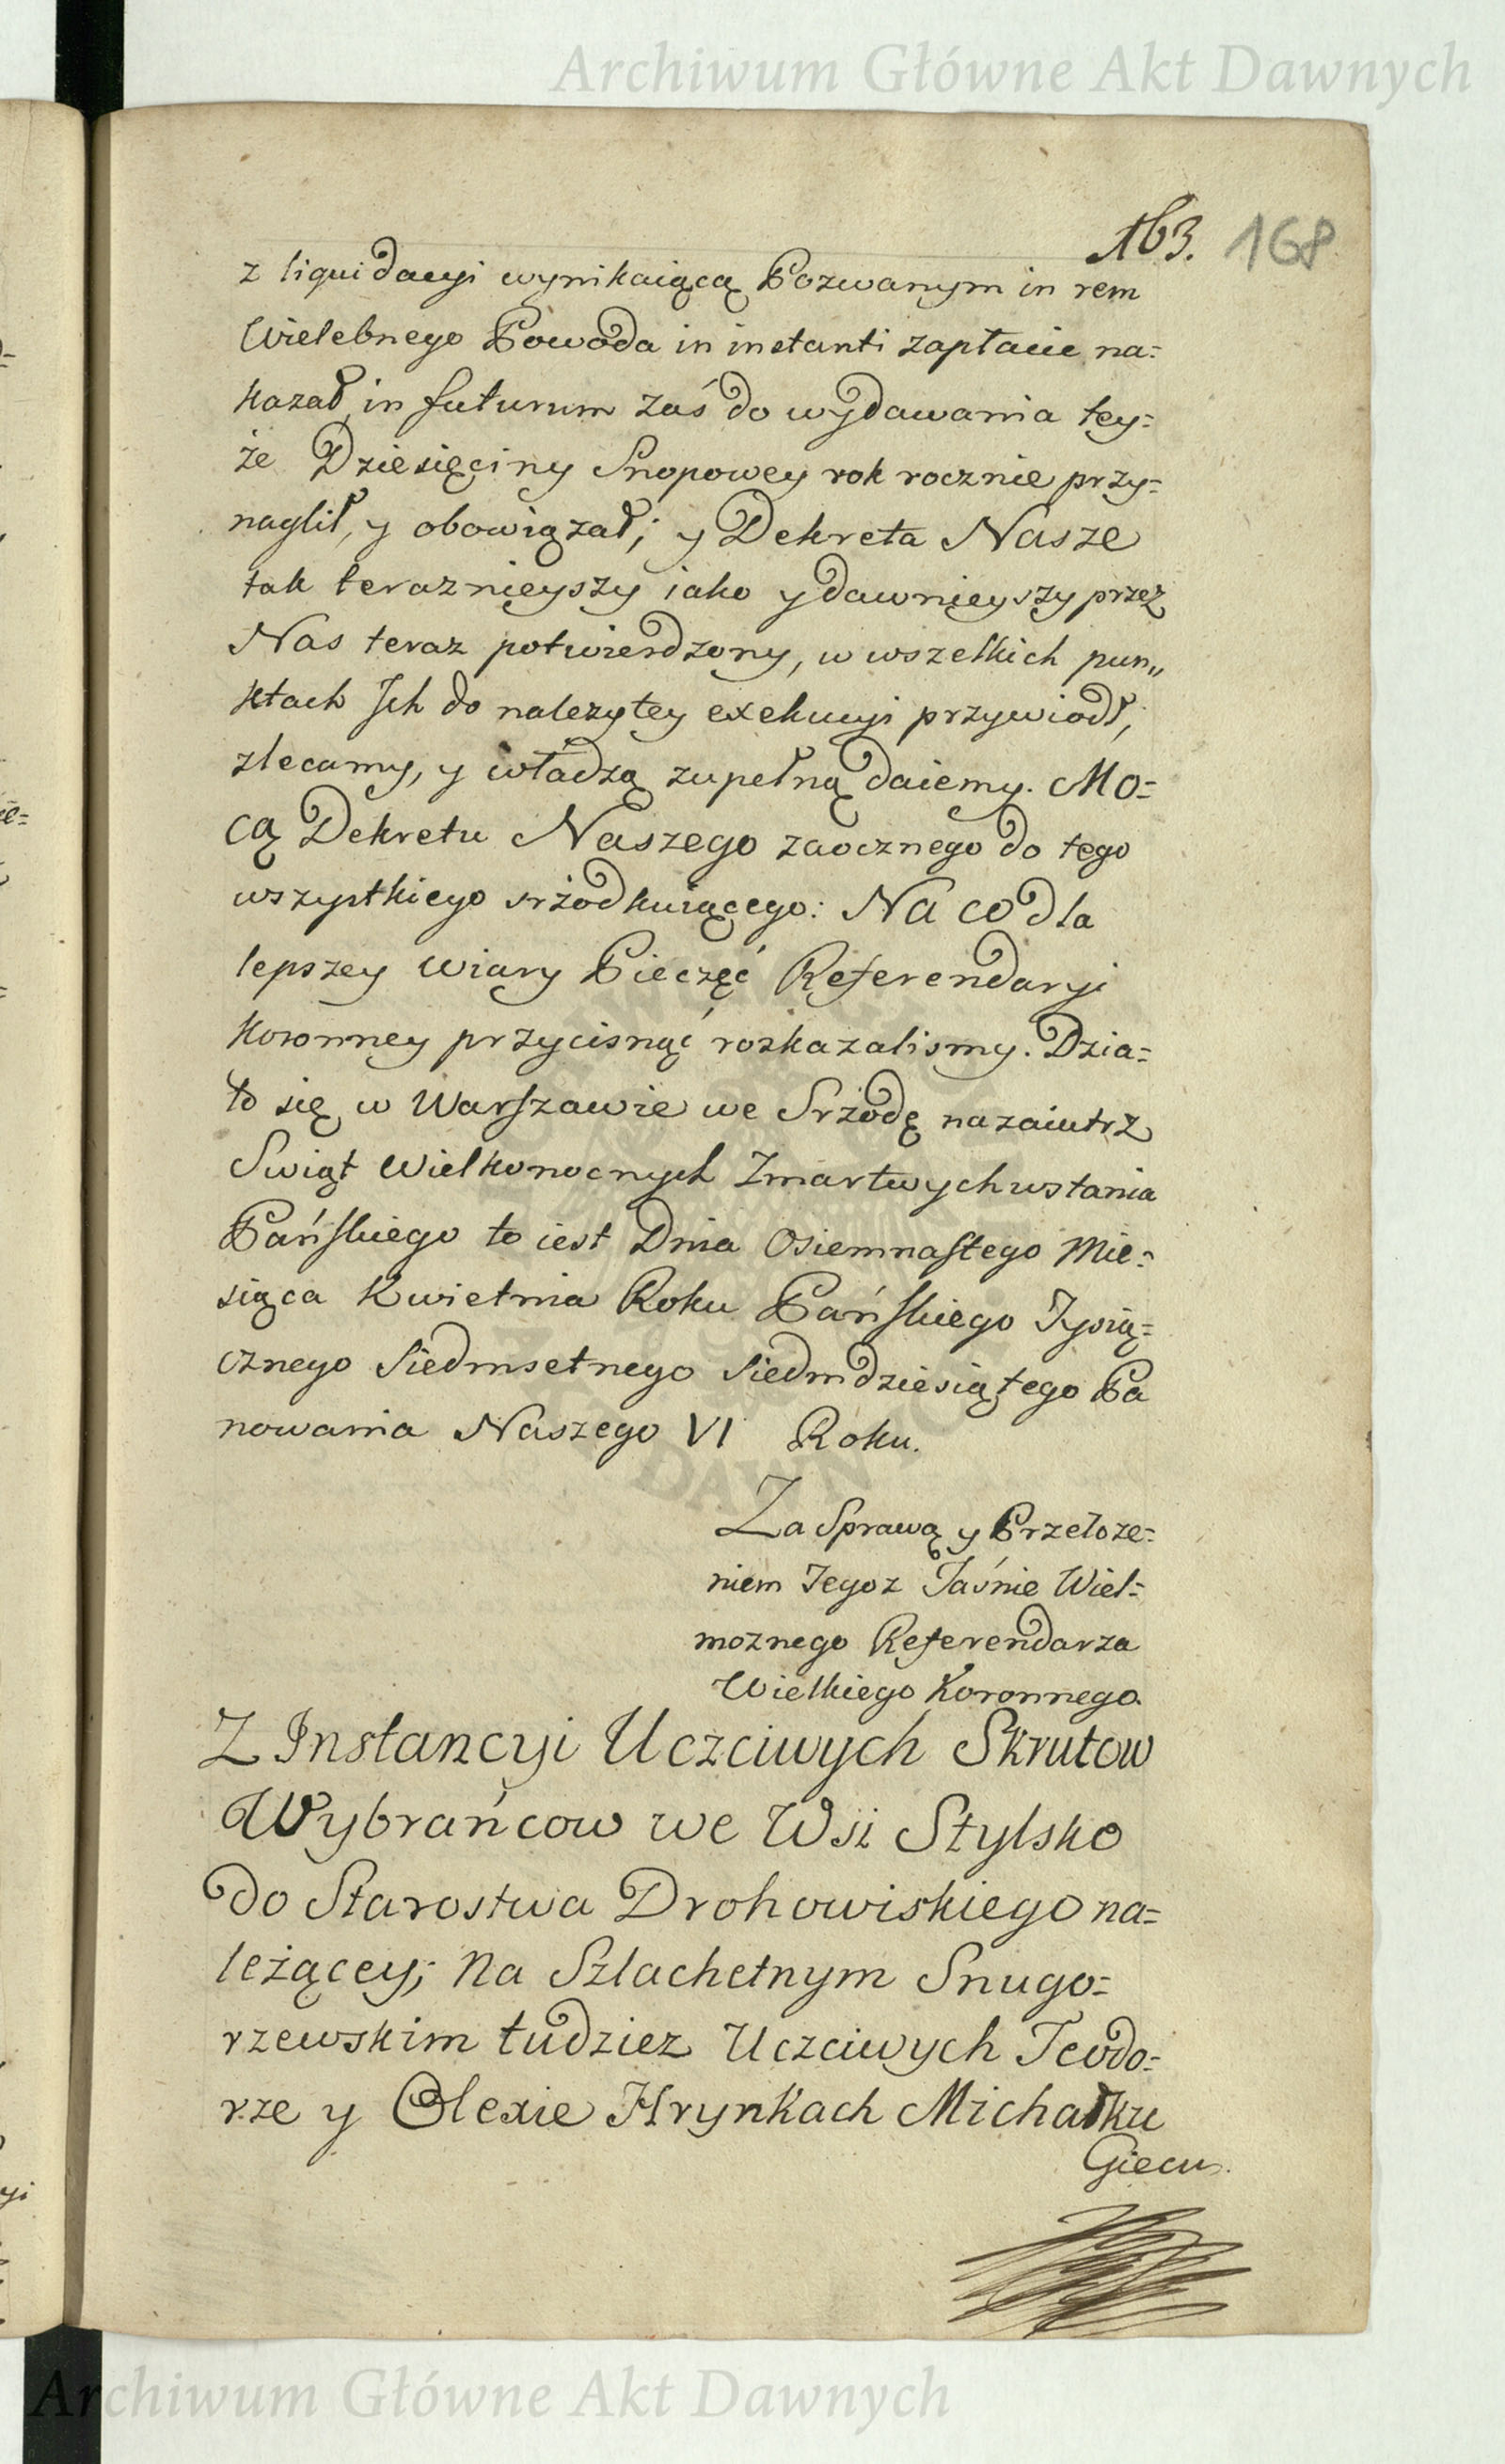 Archiwum Główne Akt Dawnych
163. 168
z liquidacyi wynikaiącą Pozwanym in rem
Wielebnego Powoda in instanti zapłacie na=
kazał, in futurum zaś do wydawania tey=
że Dziesięciny Snopowey rok rocznie przy=
naglił, y obowiązał; y Dekreta Nasze
tak teraznieyszy iako y dawnieyszy przez
Nas teraz potwierdzony, w wszelkich pun„
ktach Ich do nalezytey exekucyi przywiodł,
zlecamy, y władzą zupełną daiemy. Mo=
cą Dekretu Naszego zaocznego do tego
wszystkiego srzodkuiącego: Na co dla
lepszey wiary Pieczęć Referendaryi
Koronney przycisnąć roskazalismy. Dzia=
ło się w Warszawie we Srzodę nazaiutrz
Swiąt Wielkonocnych Zmartwychwstania
Pańskiego to iest Dnia Osiemnastego Mie=
siąca Kwietnia Roku Pańskiego Tysią=
cznego Siedmsetnego Siedmdziesiątego Pa
nowania Naszego VI Roku.
Za Sprawą y Przełoze=
niem Jegoz Jaśnie Wiel=
moznego Referendarza
Wielkiego Koronnego.
Z Instancyi Uczciwych Skrutow
Wybrańcow we Wsi Stylsko
do Starostwa Drohowiskiego na=
leżącey; Na Szlachetnym Snugo=
rzewskim tudziez Uczciwych Teodo=
rze y Olexie Hrynkach Michałku
Giecu.
Archiwum Główne Akt Dawnych